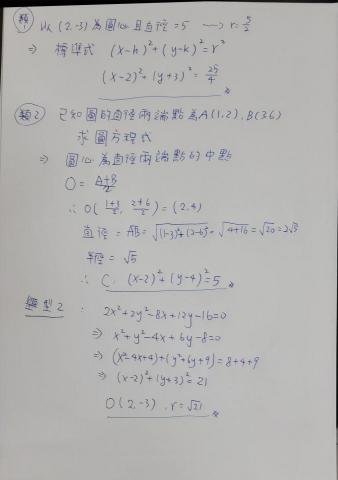 題1 以(2,-3)為圓心且直徑=5 → r=5/2
⇒ 標準式 (x-h)²+(y-k)²=r²
(x-2)²+(y+3)²=25/4
題2 已知圓的直徑兩端點為A(1,2), B(3,6)
求圓方程式
⇒ 圓心為直徑兩端點的中點
O = (A+B)/2
∴ O((1+3)/2, (2+6)/2) = (2,4)
直徑 = AB = √((1-3)²+(2-6)²) = √(4+16) = √20 = 2√5
半徑 = √5
∴ C: (x-2)²+(y-4)²=5
題型2 : 2x²+2y²-8x+12y-16=0
⇒ x²+y²-4x+6y-8=0
⇒ (x²-4x+4)+(y²+6y+9)=8+4+9
⇒ (x-2)²+(y+3)²=21
O(2,-3), r=√21